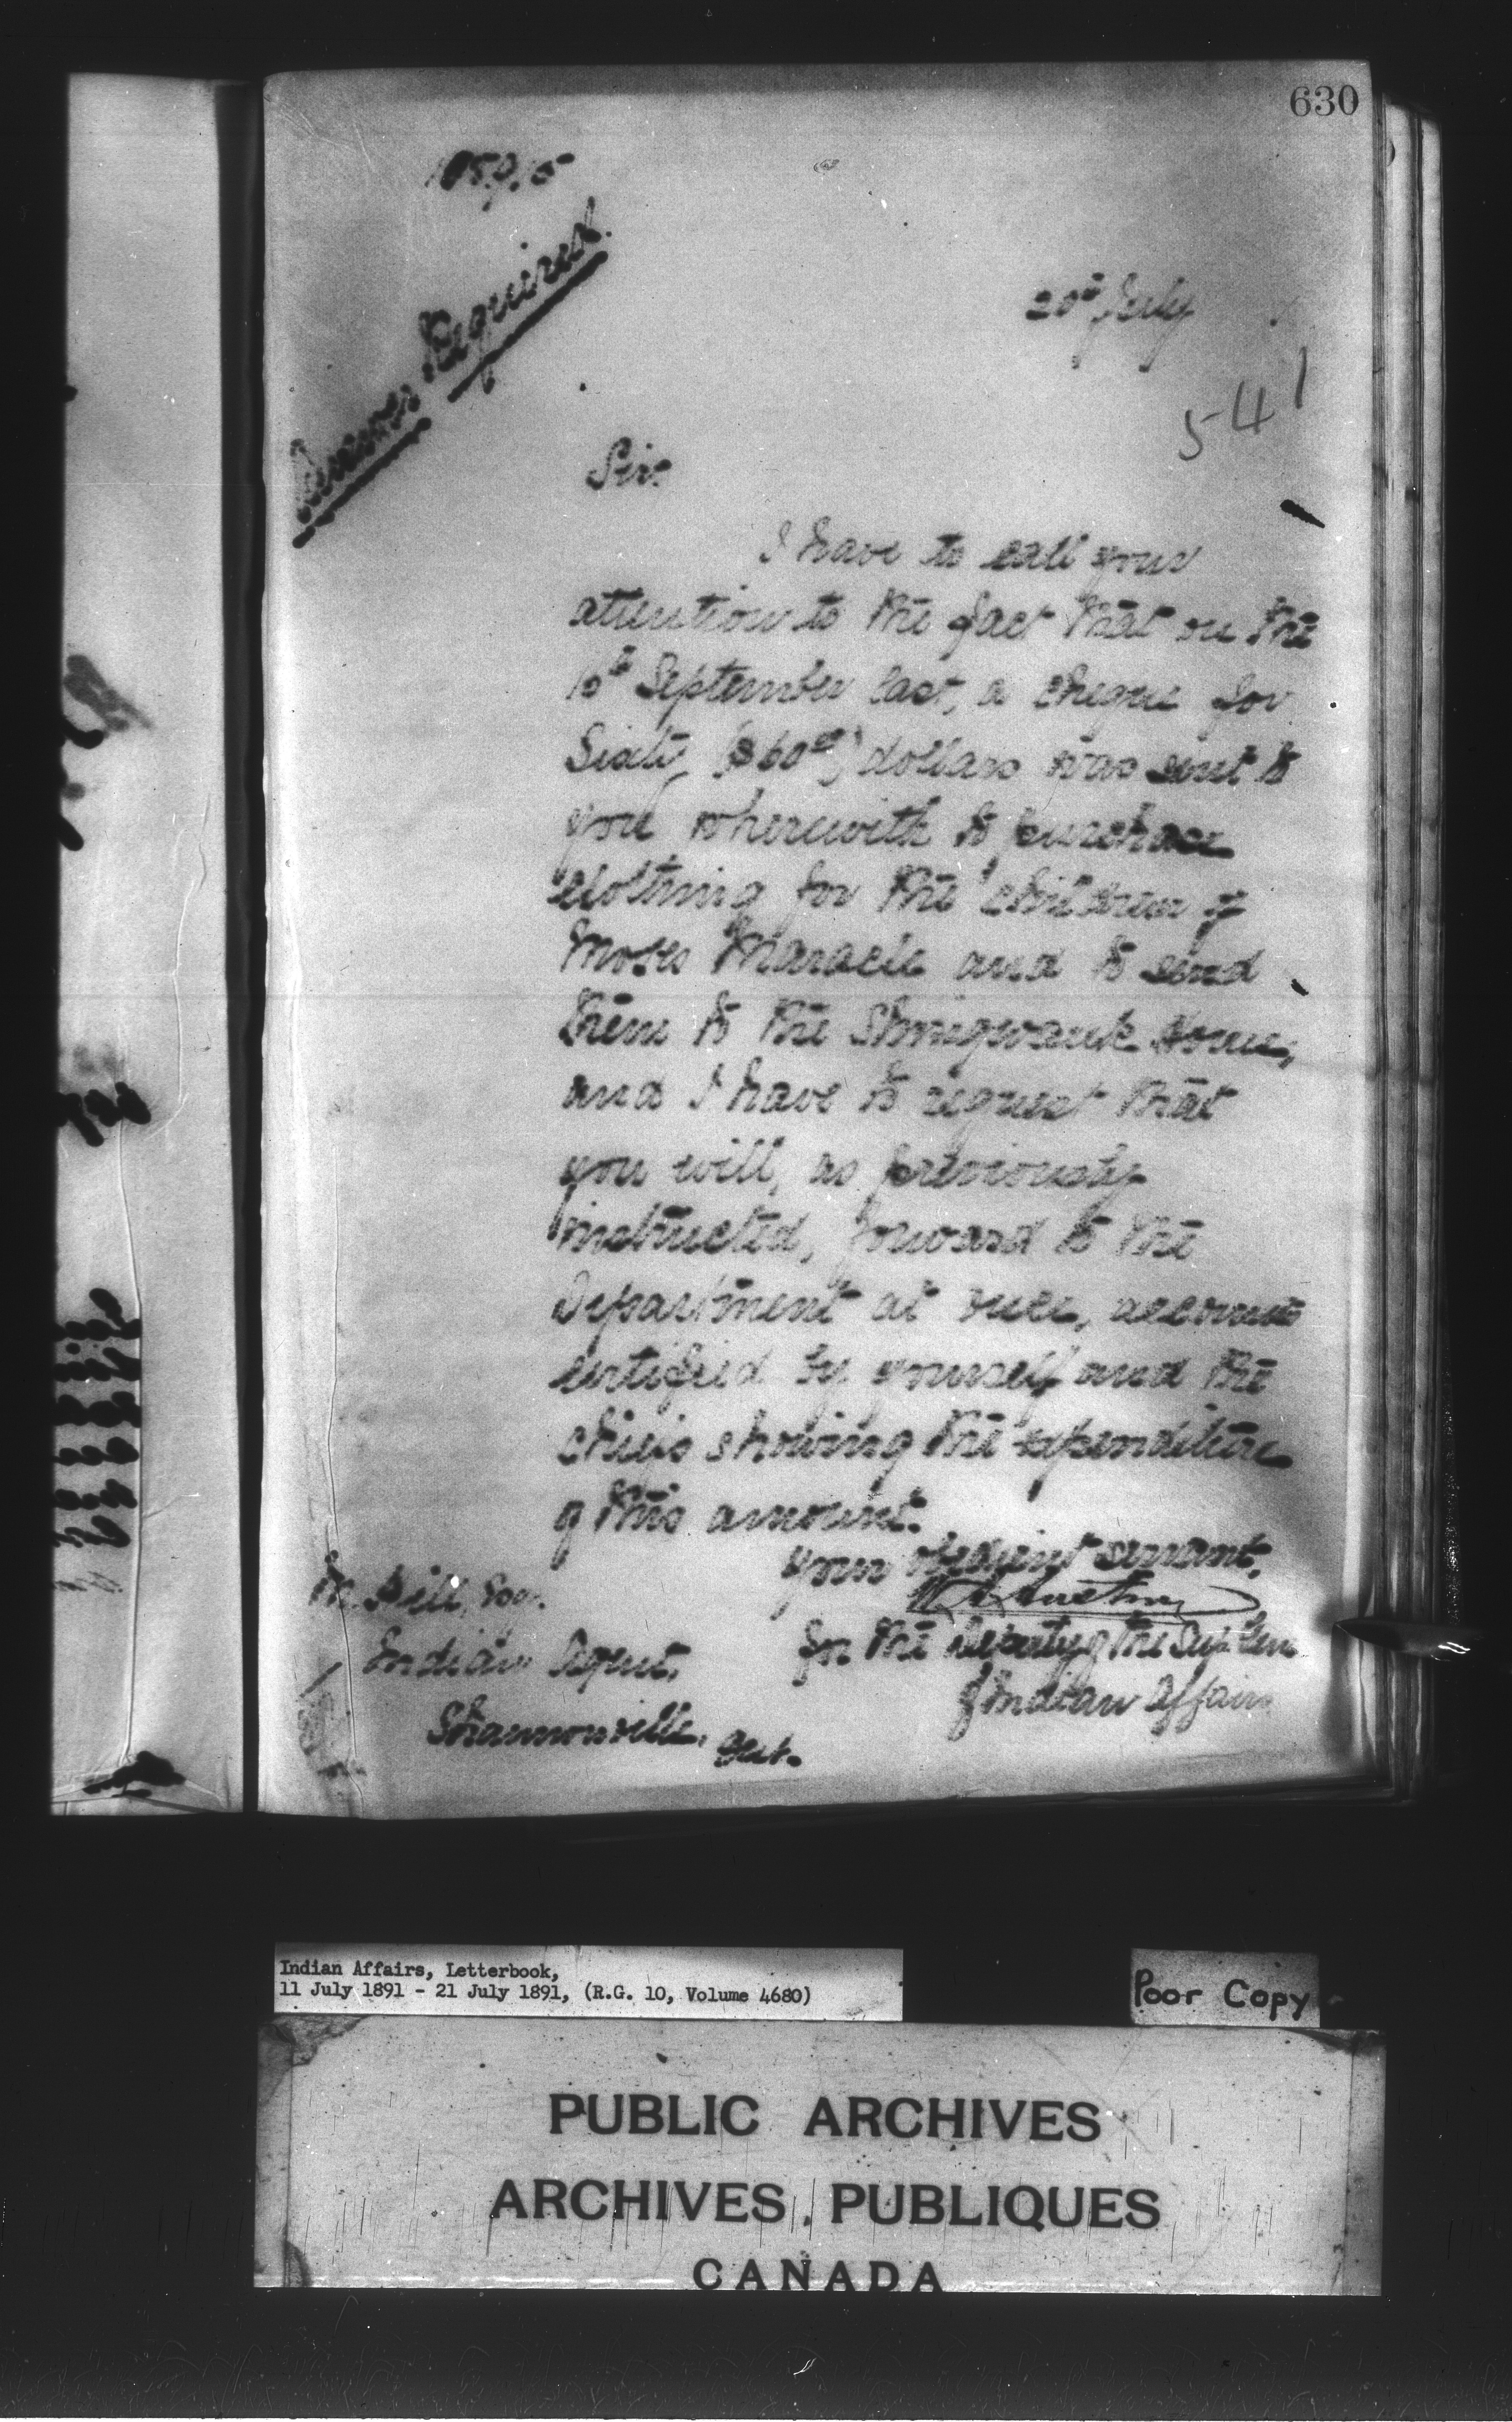 630
Answer Required.
20th July
541
Sir.
I have to call your
attention to the fact that on the
10th September last, a cheque for
Sixty ($60.00) dollars was sent to
you wherewith to purchase
clothing for the children of
Moses Maracle and to send
them to the Shingwauk Home,
and I have to request that
you will, as previously
instructed, forward to the
Department at once, accounts
certified by yourself and the
chiefs showing the expenditure
of this amount.
Your obedient servant,
for the Deputy of the Supt. Gen
of Indian Affairs
Hill, Esq.
Indian Agent,
Shannonville, Ont.
Indian Affairs, Letterbook,
11 July 1891 - 21 July 1891, (R.G. 10, Volume 4680)
Poor Copy
PUBLIC ARCHIVES
ARCHIVES PUBLIQUES
CANADA